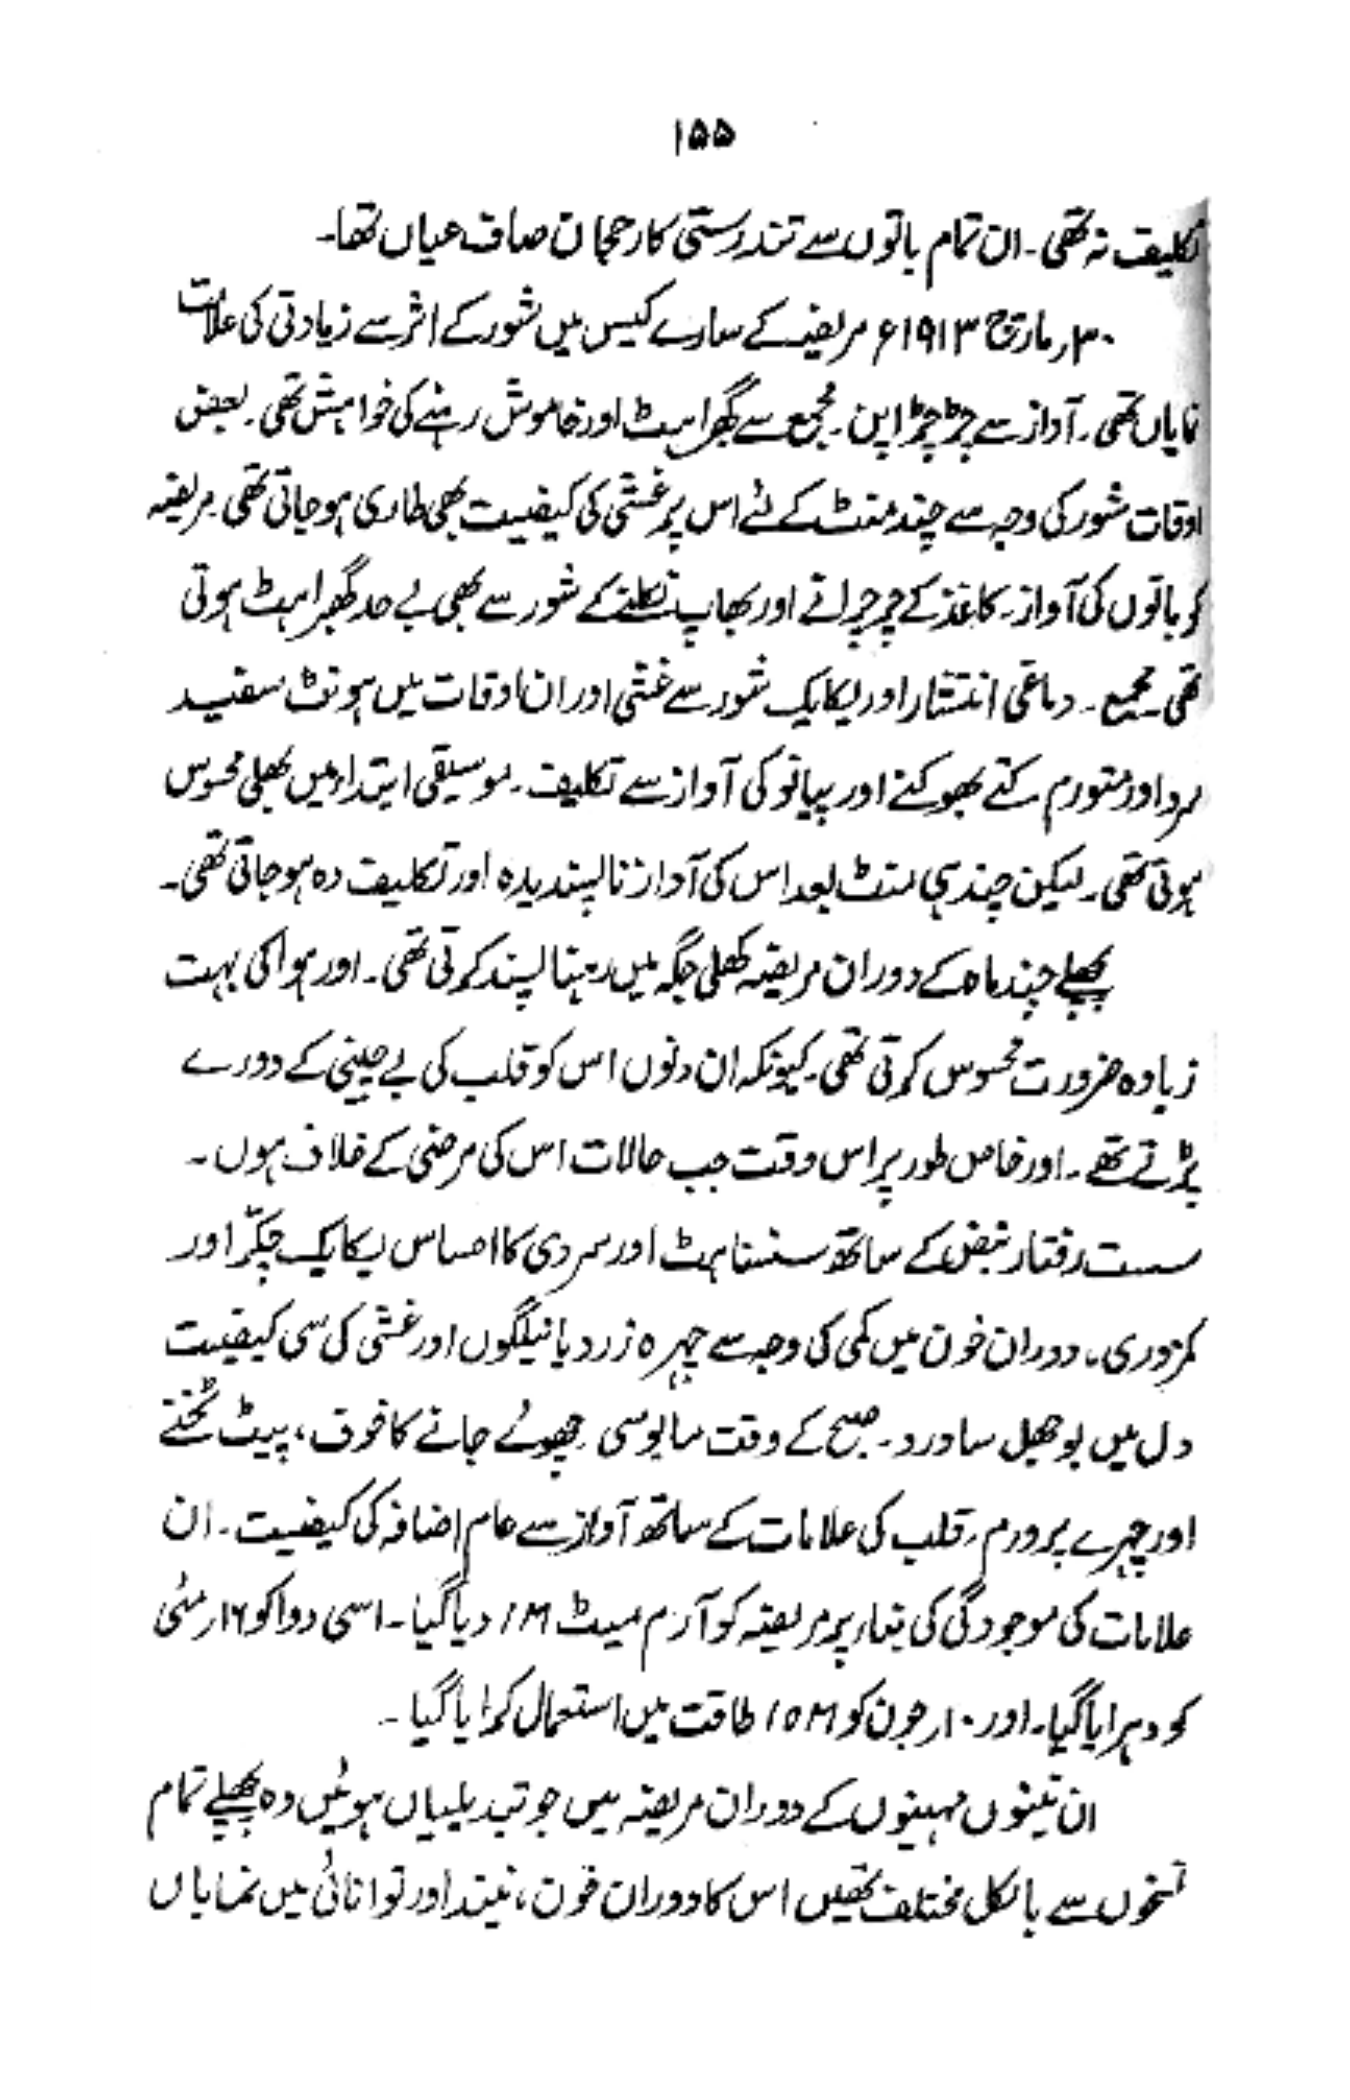 ۱۵۵
تکلیف نہ تھی۔ ان تمام باتوں سے تندرستی کا رحجان صاف عیاں تھا۔
۳۰ر مارچ ۱۹۱۳ء مریضہ کے سارے کیس میں شور کے اثر سے زیادتی کی علامات
نمایاں تھی۔ آواز سے چڑچڑاپن۔ مجمع سے گھبراہٹ اور خاموش رہنے کی خواہش تھی۔ بعض
اوقات شور کی وجہ سے چند منٹ کے لئے اس پر غشی کی کیفیت بھی طاری ہو جاتی تھی۔ مریضہ
کو باتوں کی آواز۔ کاغذ کے چرچرانے اور بھاپ نکلنے کے شور سے بھی بے حد گھبراہٹ ہوتی
تھی۔ مجمع۔ دماغی انتشار اور یکایک شور سے غشی اور ان اوقات میں ہونٹ سفید
سرد اور متورم کتے بھونکنے اور پیانو کی آواز سے تکلیف۔ موسیقی ابتداء میں بھلی محسوس
ہوتی تھی۔ لیکن چند ہی منٹ بعد اس کی آواز ناپسندیدہ اور تکلیف دہ ہو جاتی تھی۔
پچھلے چند ماہ کے دوران مریضہ کھلی جگہ میں رہنا پسند کرتی تھی۔ اور ہوا کی بہت
زیادہ ضرورت محسوس کرتی تھی۔ کیونکہ ان دنوں اس کو قلب کی بے چینی کے دورے
پڑتے تھے۔ اور خاص طور پر اس وقت جب حالات اس کی مرضی کے خلاف ہوں۔
سست رفتار نبض کے ساتھ سنسناہٹ اور سردی کا احساس یکایک چکّر اور
کمزوری۔ دوران خون میں کمی کی وجہ سے چہرہ زرد یا نیلگوں اور غشی کی سی کیفیت
دل میں بوجھل سا درد۔ صبح کے وقت مایوسی۔ چھوئے جانے کا خوف، پیٹ ٹخنے
اور چہرے پر ورم۔ قلب کی علامات کے ساتھ آواز سے عام اضافہ کی کیفیت۔ ان
علامات کی موجودگی کی بناء پر مریضہ کو آرم میٹ 1M دیا گیا۔ اسی دوا کو ۱۶ر مئی
کو دہرایا گیا۔ اور ۱۰ر جون کو 10M طاقت میں استعمال کرایا گیا۔
ان تینوں مہینوں کے دوران مریضہ میں جو تبدیلیاں ہوئیں وہ پچھلے تمام
نسخوں سے بالکل مختلف تھیں اس کا دوران خون، نیند اور توانائی میں نمایاں